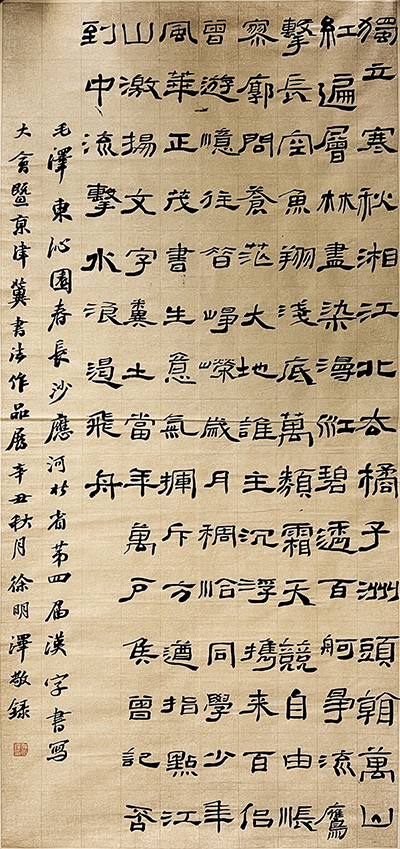 獨立寒秋湘江北去橘子洲頭看萬山
紅遍層林盡染漫江碧透百舸爭流鷹
擊長空魚翔淺底萬類霜天競自由悵
寥廓問蒼茫大地誰主沉浮攜來百侶
曾遊憶往昔崢嶸歲月稠恰同學少年
風華正茂書生意氣揮斥方遒指點江
山激揚文字糞土當年萬戶侯曾記否
到中流擊水浪遏飛舟
毛澤東沁園春長沙應河北省第四届漢字書寫
大會暨京津冀書法作品展辛丑秋月徐明澤敬録